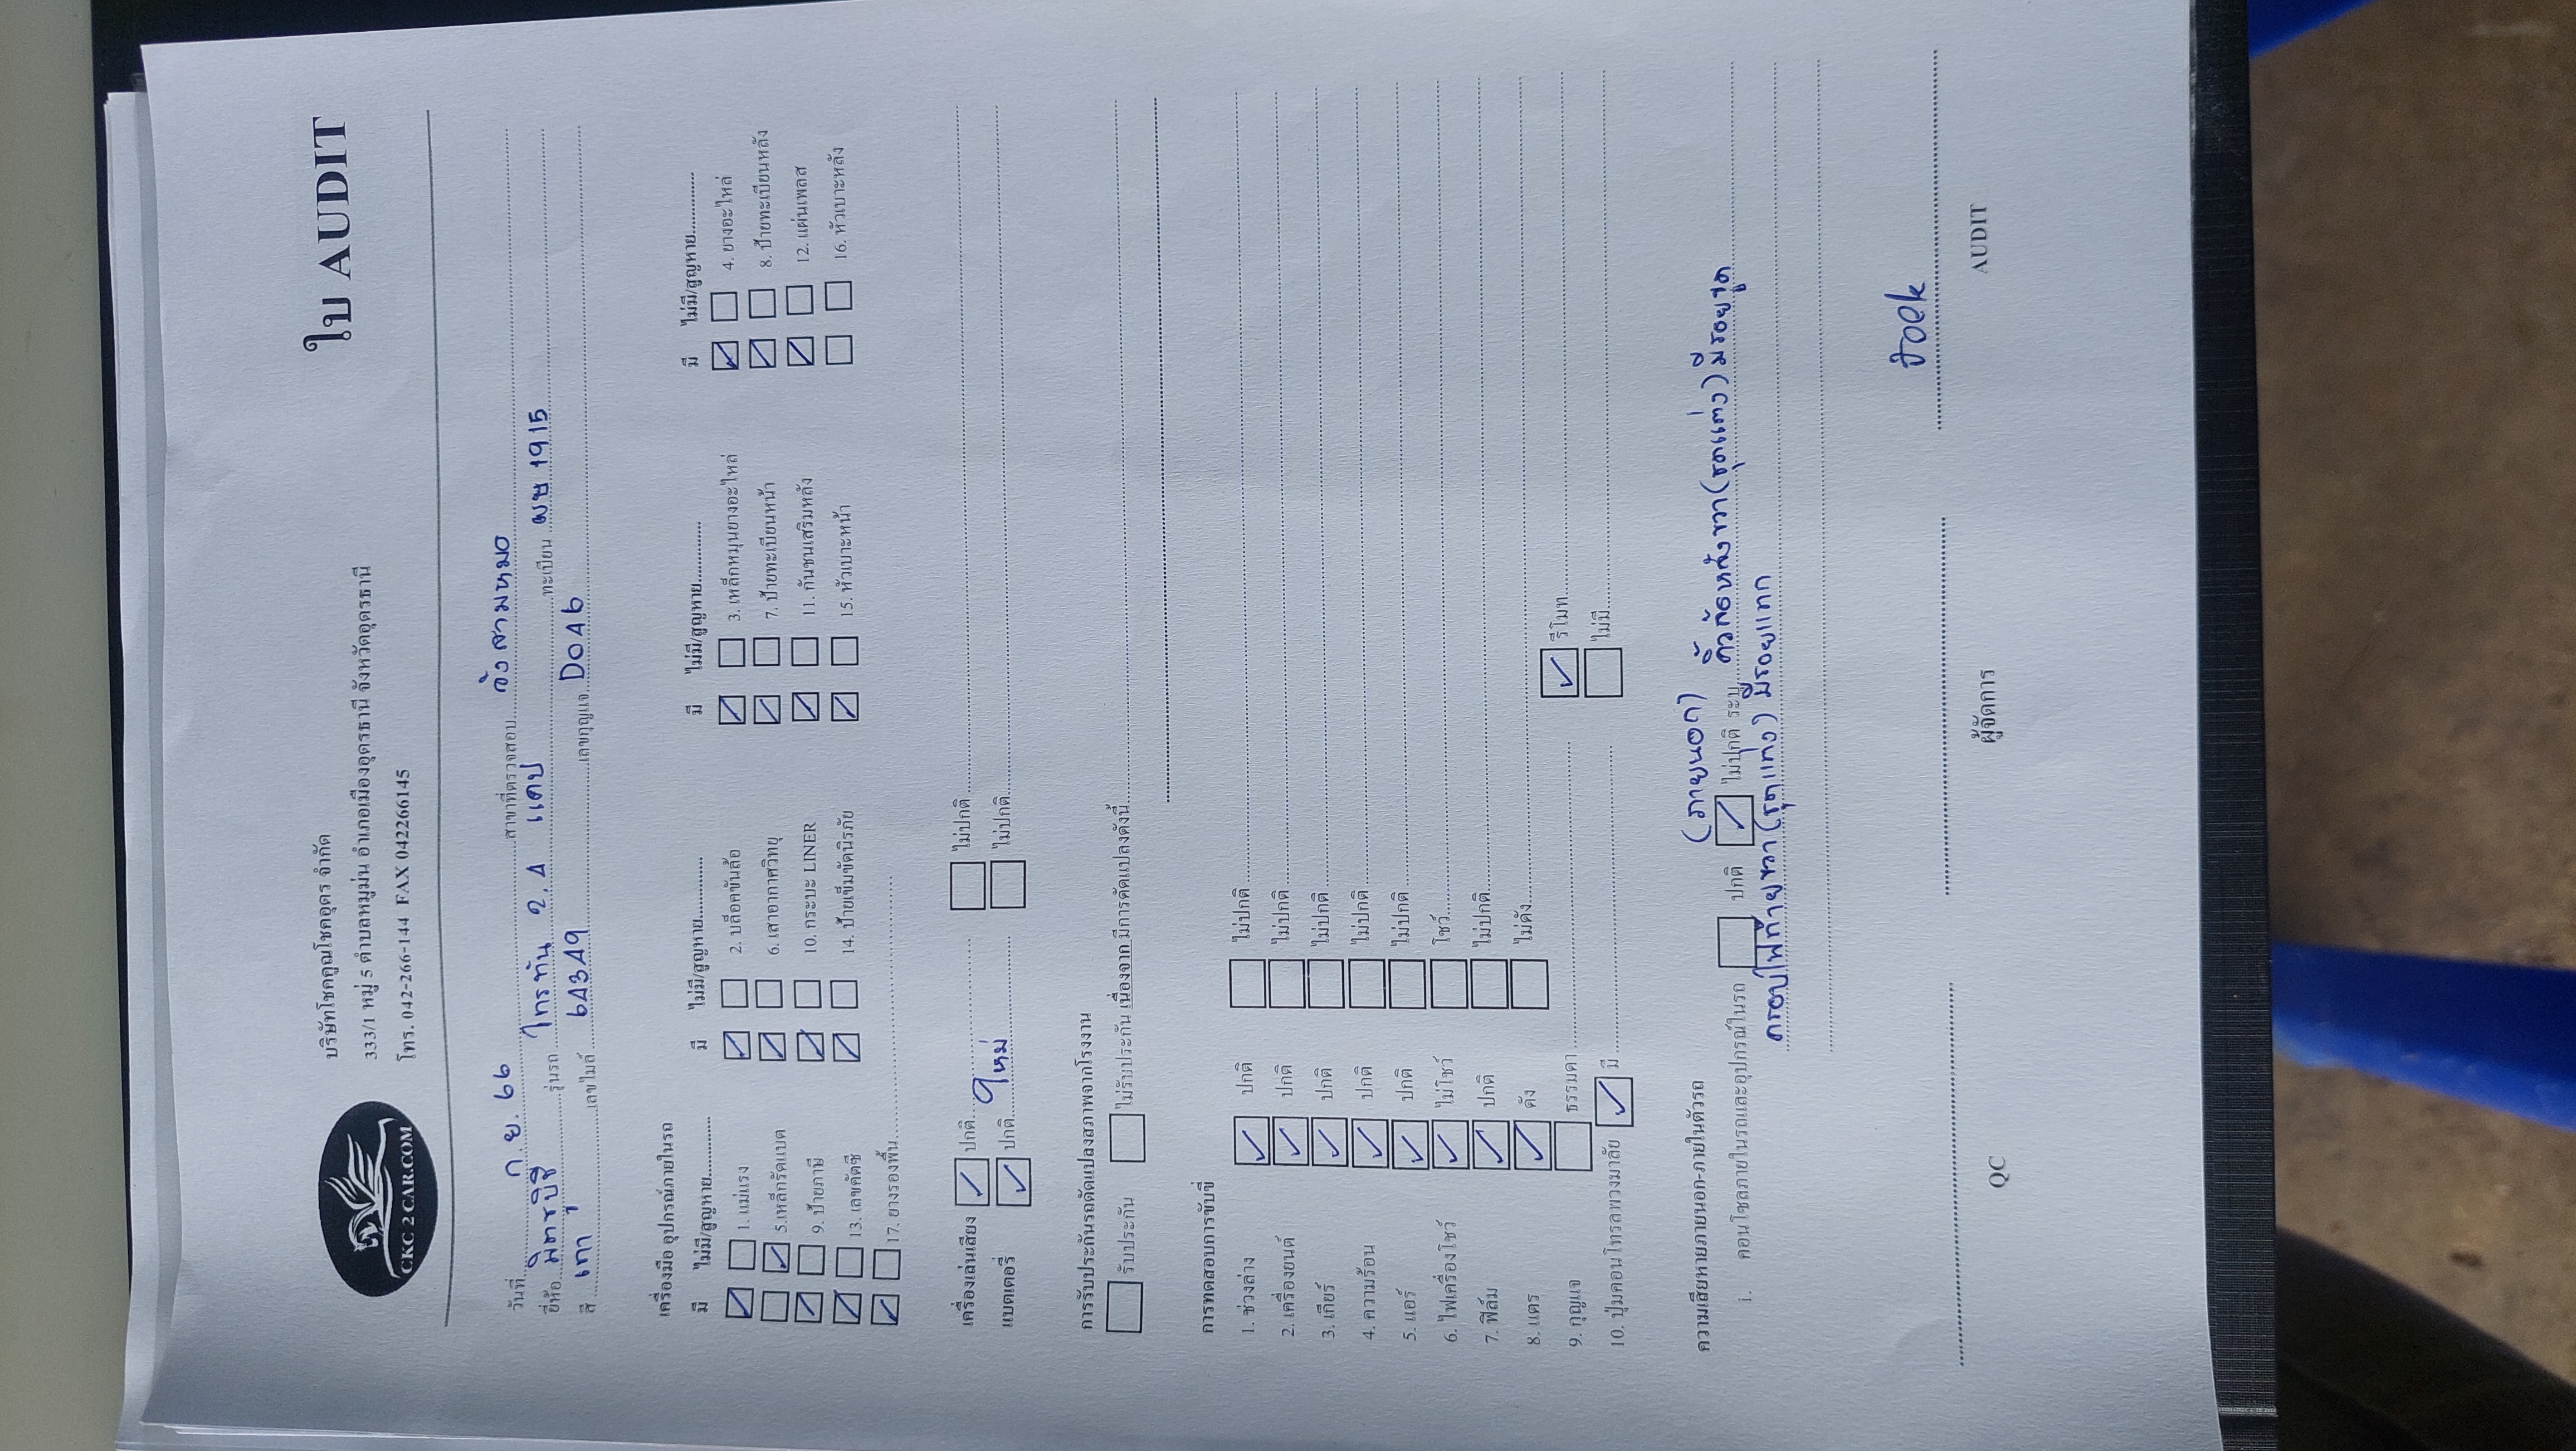 ใบ AUDIT
บริษัทโชคคูณโชคอุดร จำกัด
333/1 หมู่ 5 ตำบลหมูม่น อำเภอเมืองอุดรธานี จังหวัดอุดรธานี
โทร. 042-266-144 FAX 042266145
CKC 2 CAR.COM
วันที่ ก.ย. 66 สาขาที่ตรวจสอบ วังสามหมอ
ยี่ห้อ มิตซูบิชิ รุ่นรถ ไทรทัน 2.4 แคป ทะเบียน ผษ 1915
สี เทา เลขไมล์ 64349 เลขกุญแจ D046
เครื่องมือ อุปกรณ์ภายในรถ
มี ไม่มี/สูญหาย มี ไม่มี/สูญหาย มี ไม่มี/สูญหาย มี ไม่มี/สูญหาย
1. แม่แรง 2. บล็อคขันล้อ 3. เหล็กหมุนยางอะไหล่ 4. ยางอะไหล่
5.เหล็กรัดแบต 6. เสาอากาศวิทยุ 7. ป้ายทะเบียนหน้า 8. ป้ายทะเบียนหลัง
9. ป้ายภาษี 10. กระบะ LINER 11. กันชนเสริมหลัง 12. แผ่นเพลส
13. เลขคัดซี 14. ป้ายเข็มขัดนิรภัย 15. หัวเบาะหน้า 16. หัวเบาะหลัง
17. ยางรองพื้น
เครื่องเล่นเสียง ปกติ ไม่ปกติ
แบตเตอรี่ ปกติ ใหม่ ไม่ปกติ
การรับประกันรถดัดแปลงสภาพจากโรงงาน
รับประกัน ไม่รับประกัน เนื่องจาก มีการดัดแปลงดังนี้
การทดสอบการขับขี่
1. ช่วงล่าง ปกติ ไม่ปกติ
2. เครื่องยนต์ ปกติ ไม่ปกติ
3. เกียร์ ปกติ ไม่ปกติ
4. ความร้อน ปกติ ไม่ปกติ
5. แอร์ ปกติ ไม่ปกติ
6. ไฟเครื่องโชว์ ไม่โชว์ โชว์
7. ฟิล์ม ปกติ ไม่ปกติ
8. แตร ดัง ไม่ดัง
9. กุญแจ ธรรมดา รีโมท
10. ปุ่มคอนโทรลพวงมาลัย มี ไม่มี
ความเสียหายภายนอก-ภายในตัวรถ (ภายนอก)
i. คอนโซลภายในรถและอุปกรณ์ในรถ ปกติ ไม่ปกติ ระบุ คิ้วล้อหลังขวา(ชุดแต่ง) มีรอยขูด
ครอบไฟท้ายขวา(ชุดแต่ง) มีรอยแตก
Joek
QC ผู้จัดการ AUDIT